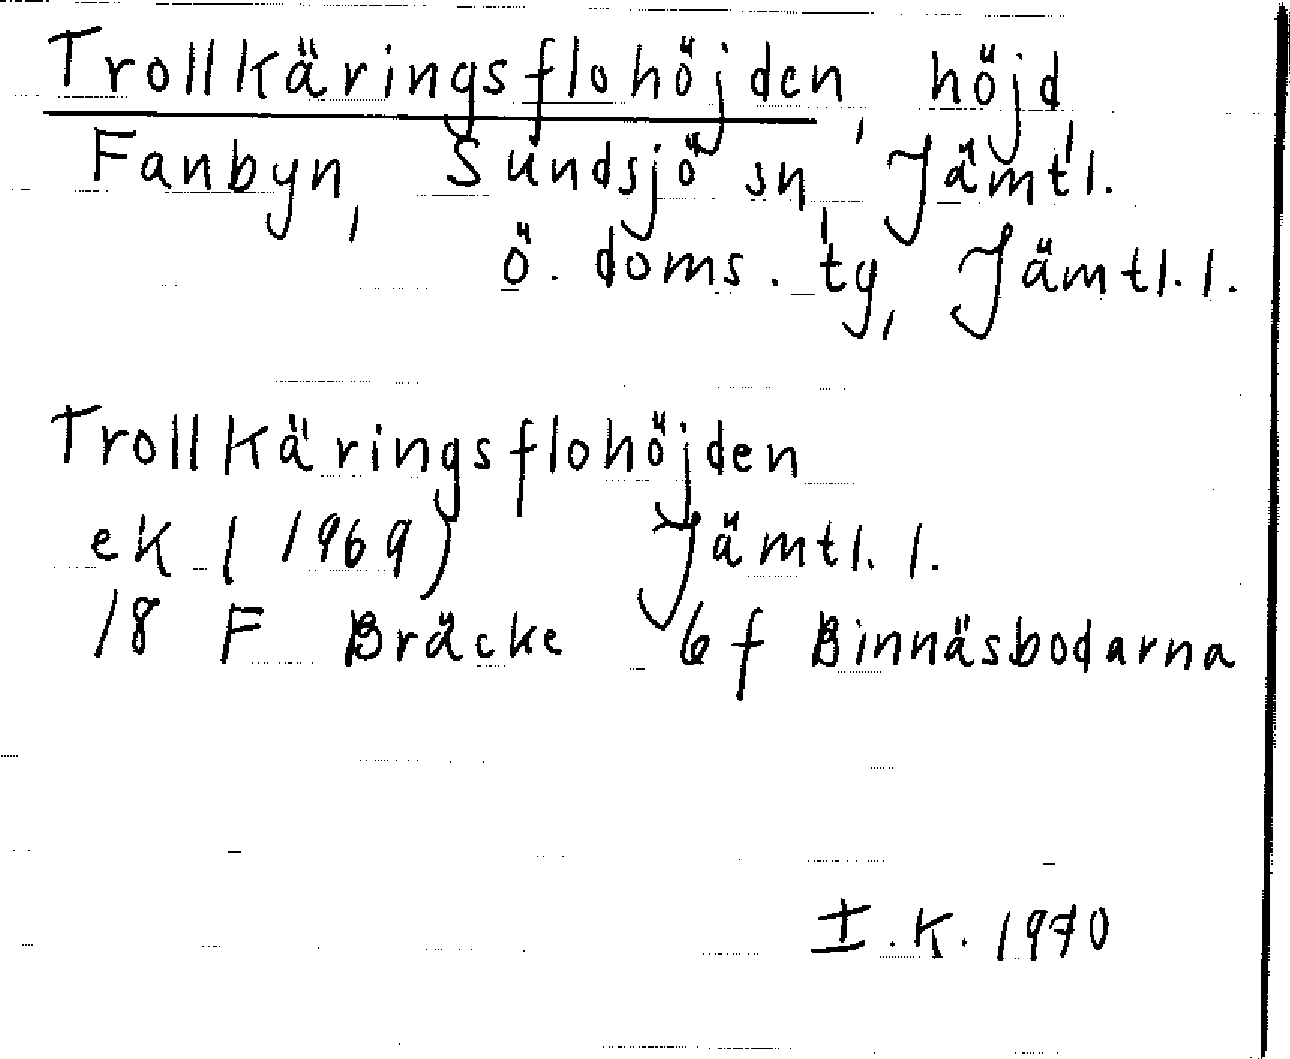 Trollkäringsflohöjden, höjd,
Fanbyn, Sundsjö sn, Jämtl.
ö. doms. tg, Jämtl. l.
Trollkäringsflohöjden
ek (1969) Jämtl. l.
18 F Bräcke 6 f Binnäsbodarna
I.K. 1970